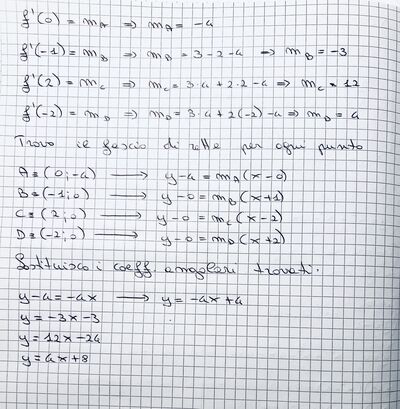 f'(0) = m_A ⇒ m_A = -4
f'(-1) = m_B ⇒ m_B = 3-2-4 ⇒ m_B = -3
f'(2) = m_C ⇒ m_C = 3·4+2·2-4 ⇒ m_C = 12
f'(-2) = m_D ⇒ m_D = 3·4+2(-2)-4 ⇒ m_D = 4
Trovo il fascio di rette per ogni punto
A≡(0;-4) → y-4 = m_A(x-0)
B≡(-1;0) → y-0 = m_B(x+1)
C≡(2;0) → y-0 = m_C(x-2)
D≡(-2;0) → y-0 = m_D(x+2)
Sostituisco i coeff. angolari trovati.
y-4 = -4x → y = -4x+4
y = -3x-3
y = 12x-24
y = 4x+8